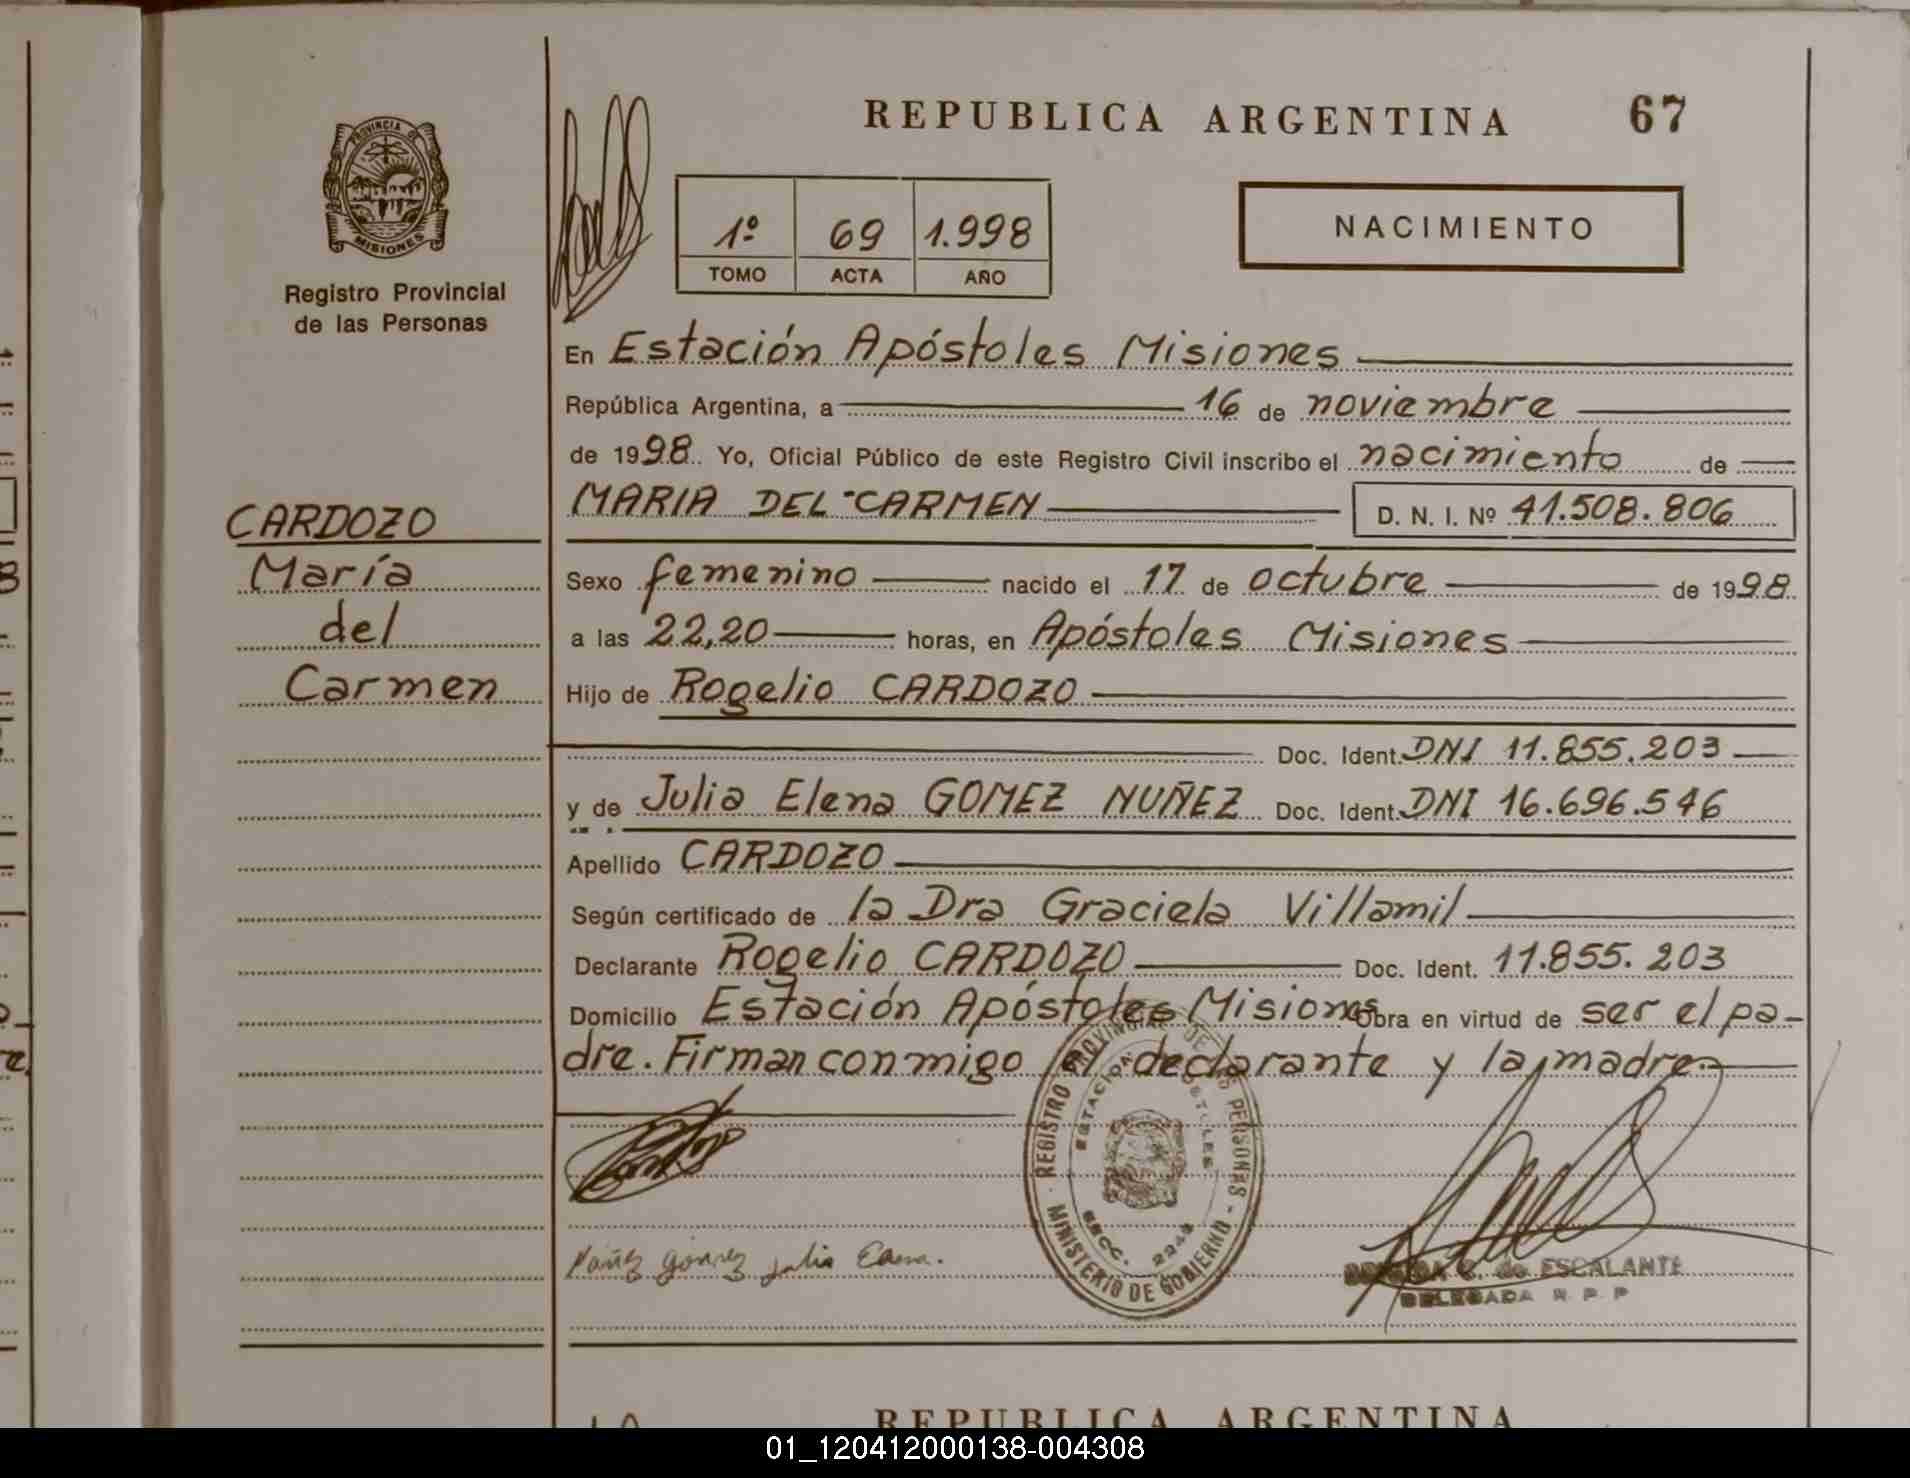 REPUBLICA ARGENTINA 67
PROVINCIA DE
MISIONES
Registro Provincial
de las Personas
1º 69 1.998
TOMO ACTA AÑO
NACIMIENTO
En Estación Apóstoles Misiones
República Argentina, a 16 de noviembre
de 1998. Yo, Oficial Público de este Registro Civil inscribo el nacimiento de
MARIA DEL CARMEN D. N. I. Nº 41.508.806
CARDOZO
María
del
Carmen
Sexo femenino nacido el 17 de octubre de 1998
a las 22,20 horas, en Apóstoles Misiones
Hijo de Rogelio CARDOZO
Doc. Ident. DNI 11.855.203
y de Julia Elena GOMEZ NUÑEZ Doc. Ident. DNI 16.696.546
Apellido CARDOZO
Según certificado de la Dra Graciela Villamil
Declarante Rogelio CARDOZO Doc. Ident. 11.855.203
Domicilio Estación Apóstoles Misiones Obra en virtud de ser el pa-
dre. Firman conmigo el declarante y la madre.
REGISTRO PROVINCIAL DE LAS PERSONAS - MINISTERIO DE GOBIERNO -
ESTACION APOSTOLES
SECC. 2242
Núñez Gómez Julia
de ESCALANTE
DELEGADA R. P. P
REPUBLICA ARGENTINA
01_120412000138-004308